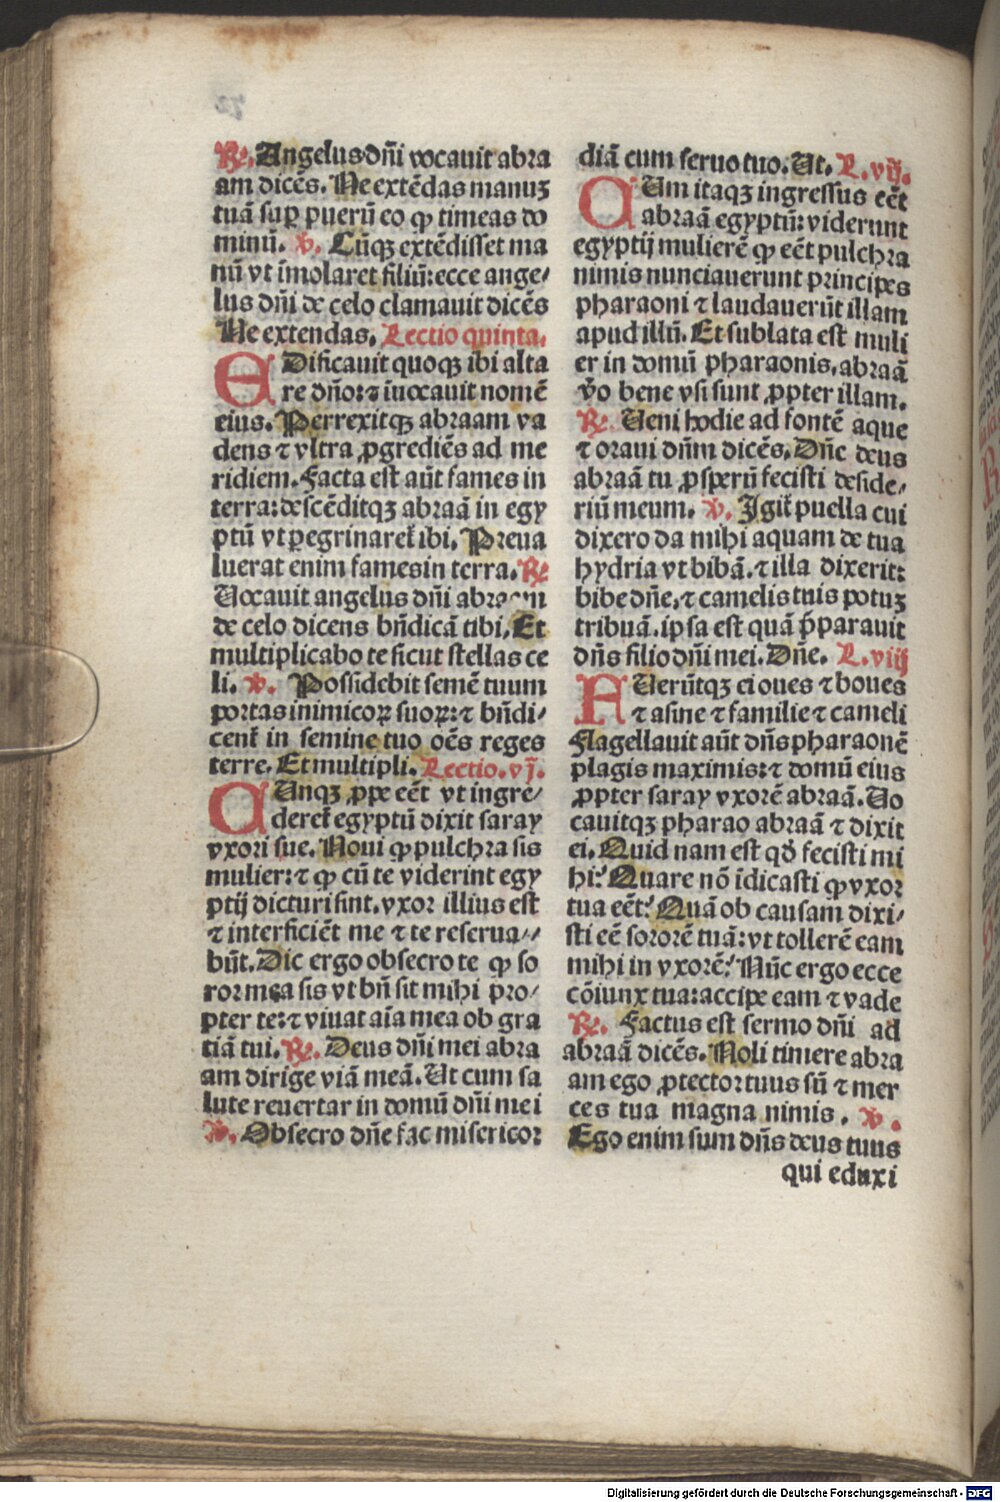 ℟. Angelus dn̄i vocauit abra
am dicēs. Ne extēdas manuꝫ
tuā suꝑ puerū eo ꝙ timeas do
minū. ℣. Cūqꝫ extēdisset ma
nū vt īmolaret filiū: ecce ange⸗
lus dn̄i de celo clamauit dicēs
Ne extendas. Lectio quinta.
EDificauit quoqꝫ ibi alta
re dn̄o: ⁊ īuocauit nomē
eius. Perrexitqꝫ abraam va
dens ⁊ vltra ꝓgrediēs ad me
ridiem. Facta est aūt fames in
terra: descēditqꝫ abraā in egy
ptū vt ꝑegrinaret᷑ ibi. Preua
luerat enim fames in terra. ℟
Uocauit angelus dn̄i abraam
de celo dicens bn̄dicā tibi. Et
multiplicabo te sicut stellas ce
li. ℣. Possidebit semē tuum
portas inimicoꝝ suoꝝ: ⁊ bn̄di⸗
cent᷑ in semine tuo oēs reges
terre. Et multipli. Lectio. vj.
CUnqꝫ ꝓpe eēt vt ingre⸗
deret᷑ egyptū dixit saray
vxori sue. Noui ꝙ pulchra sis
mulier: ⁊ ꝙ cū te viderint egy
ptij dicturi sint. vxor illius est
⁊ interficiēt me ⁊ te reserua⸗
būt. Dic ergo obsecro te ꝙ so
ror mea sis vt bn̄ sit mihi pro⸗
pter te: ⁊ viuat aīa mea ob gra
tiā tui. ℟. Deus dn̄i mei abra
am dirige viā meā. Ut cum sa
lute reuertar in domū dn̄i mei
℣. Obsecro dn̄e fac misericor
diā cum seruo tuo. Ut. L. vij.
CUm itaqꝫ ingressus eēt
abraā egyptū: viderunt
egyptij mulierē ꝙ eēt pulchra
nimis nunciauerunt principes
pharaoni ⁊ laudauerūt illam
apud illū. Et sublata est muli
er in domū pharaonis. abraā
v̄o bene vsi sunt ꝓpter illam.
℟. Ueni hodie ad fontē aque
⁊ oraui dn̄m dicēs. Dn̄e deus
abraā tu ꝓsperū fecisti deside⸗
riū meum. ℣. Igit᷑ puella cui
dixero da mihi aquam de tua
hydria vt bibā. ⁊ illa dixerit:
bibe dn̄e, ⁊ camelis tuis potuꝫ
tribuā. ipsa est quā p̄parauit
dn̄s filio dn̄i mei. Dn̄e. L. viij
FUerūtqꝫ ei oues ⁊ boues
⁊ asine ⁊ familie ⁊ cameli
Flagellauit aūt dn̄s pharaonē
plagis maximis: ⁊ domū eius
ꝓpter saray vxorē abraā. Uo
cauitqꝫ pharao abraā ⁊ dixit
ei. Quid nam est qd̄ fecisti mi
hi? Quare nō īdicasti ꝙ vxor
tua eēt? Quā ob causam dixi⸗
sti eē sororē tuā: vt tollerē eam
mihi in vxorē? Nūc ergo ecce
cōiunx tua: accipe eam ⁊ vade
℟. Factus est sermo dn̄i ad
abraā dicēs. Noli timere abra
am ego ꝓtector tuus sū ⁊ mer
ces tua magna nimis. ℣.
Ego enim sum dn̄s deus tuus
qui eduxi
Digitalisierung gefördert durch die Deutsche Forschungsgemeinschaft - DFG